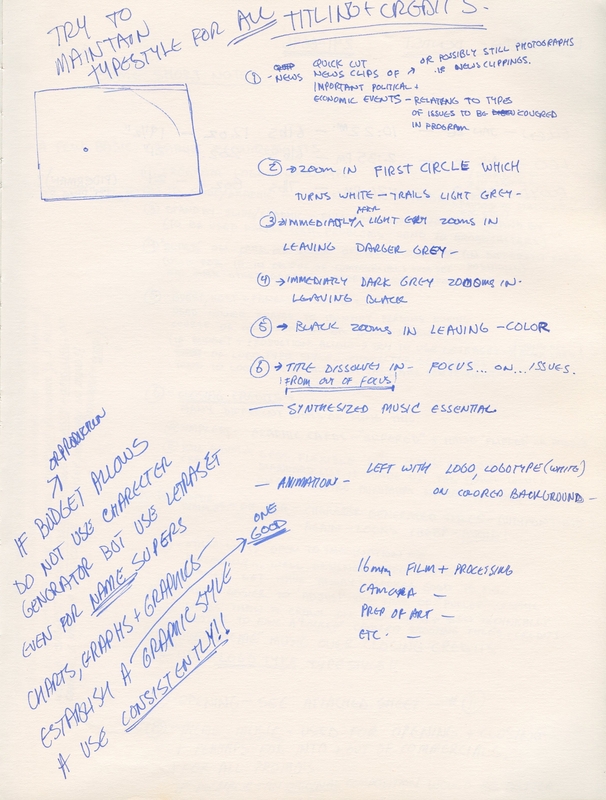 TRY TO
MAINTAIN
TYPESTYLE FOR ALL TITLING + CREDITS.
① - NEWS QUICK CUT
NEWS CLIPS OF → OR POSSIBLY STILL PHOTOGRAPHS
IMPORTANT POLITICAL + OF NEWS CLIPPINGS.
ECONOMIC EVENTS - RELATING TO TYPES
OF ISSUES TO BE COVERED
IN PROGRAM
② → ZOOM IN FIRST CIRCLE WHICH
TURNS WHITE - TRAILS LIGHT GREY -
③ → IMMEDIATLY AFTER LIGHT GREY ZOOMS IN
LEAVING DARGER GREY -
④ → IMMEDIATLY DARK GREY ZOOMS IN -
LEAVING BLACK
⑤ → BLACK ZOOMS IN LEAVING - COLOR
⑥ → TITLE DISSOLVES IN - FOCUS... ON... ISSUES.
FROM OUT OF FOCUS
— SYNTHESIZED MUSIC ESSENTIAL
— ANIMATION - LEFT WITH LOGO, LOGOTYPE (WHITE)
ON COLORED BACKGROUND -
16mm FILM + PROCESSING
CAMERA -
PREP OF ART -
ETC. -
OR PRODUCTION
IF BUDGET ALLOWS
DO NOT USE CHARECTER
GENERATOR BUT USE LETRASET
EVEN FOR NAME SUPERS
CHARTS, GRAPHS + GRAPHICS -
ESTABLISH A GRAPHIC STYLE
ONE
GOOD
+ USE CONSISTENTLY!!